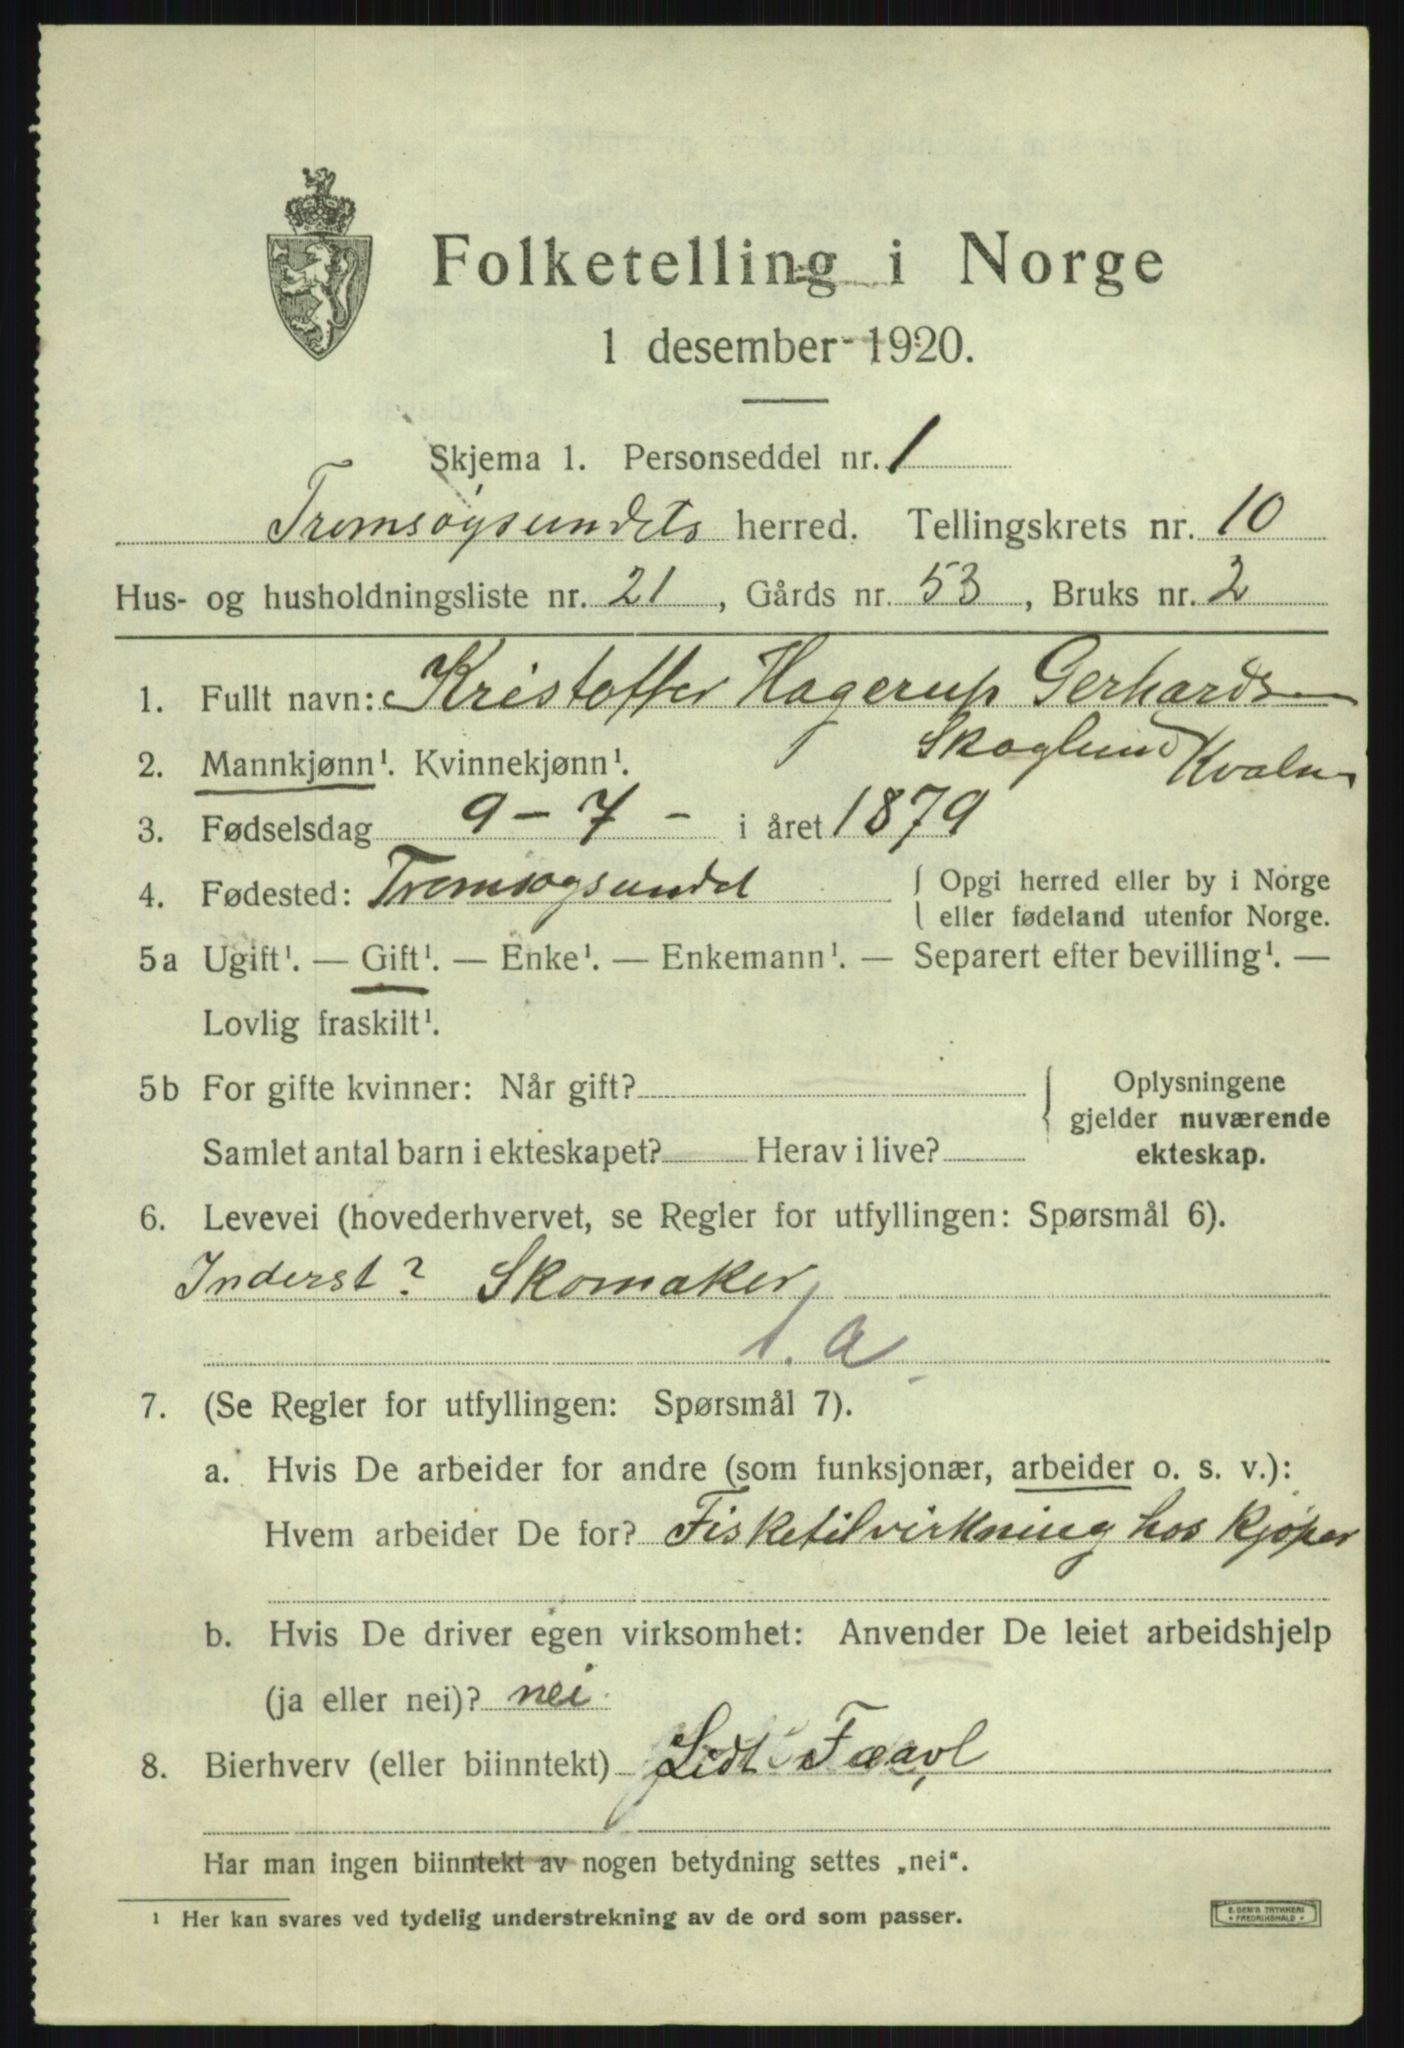 Folketelling i Norge
1 desember 1920.
Skjema 1. Personseddel nr. 1
Tromsøysundets herred. Tellingskrets nr. 10
Hus- og husholdningsliste nr. 21, Gårds nr. 53, Bruks nr. 2
1. Fullt navn: Kristoffer Hagerup Gerhards
Skoglund
2. Mannkjønn¹. Kvinnekjønn¹.
3. Fødselsdag 9 - 7 - i året 1879
4. Fødested: Tromsøysundet { Opgi herred eller by i Norge
eller fødeland utenfor Norge.
5a Ugift¹. — Gift¹. — Enke¹. — Enkemann¹. — Separert efter bevilling¹. —
Lovlig fraskilt¹.
5b For gifte kvinner: Når gift? { Oplysningene
gjelder nuværende
Samlet antal barn i ekteskapet? Herav i live? ekteskap.
6. Levevei (hovederhvervet, se Regler for utfyllingen: Spørsmål 6).
Inderst? Skomaker
1. a
7. (Se Regler for utfyllingen: Spørsmål 7).
a. Hvis De arbeider for andre (som funksjonær, arbeider o. s. v.):
Hvem arbeider De for? Fisketilvirkning hos kjøper
b. Hvis De driver egen virksomhet: Anvender De leiet arbeidshjelp
(ja eller nei)? nei
8. Bierhverv (eller biinntekt) Lidt Fæavl
Har man ingen biinntekt av nogen betydning settes „nei“.
¹ Her kan svares ved tydelig understrekning av de ord som passer.
E. SEM'S TRYKKERI
FREDRIKSHALD